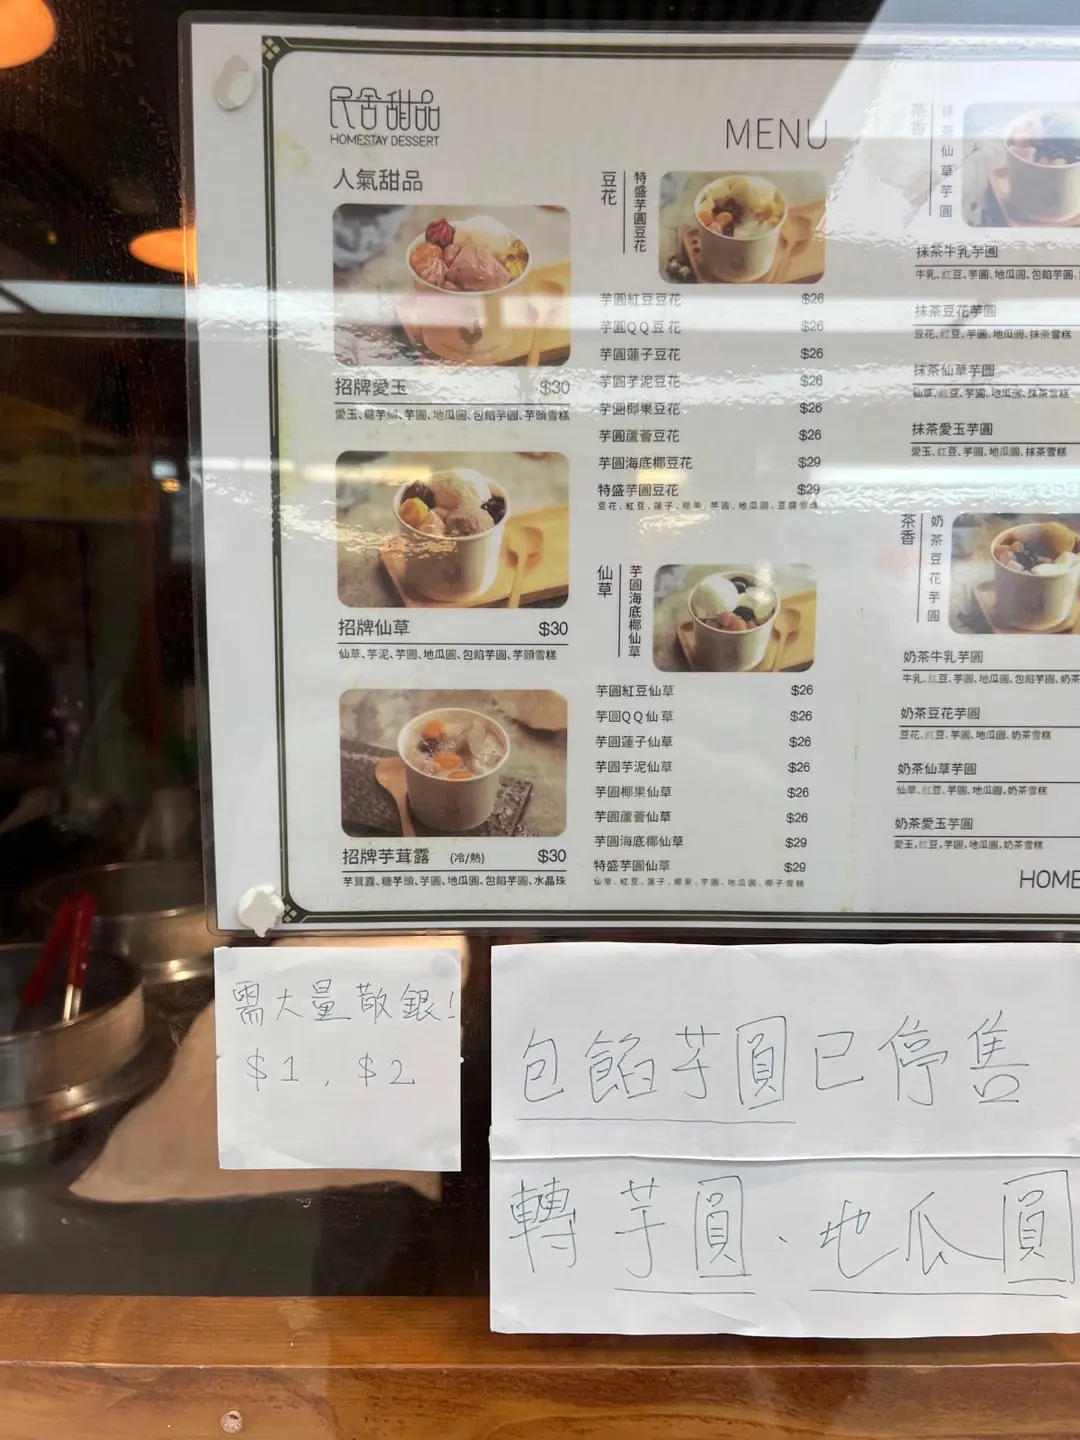 民舍甜品
HOMESTAY DESSERT
MENU
人氣甜品
招牌愛玉 $30
愛玉、糖芋頭、芋圓、地瓜圓、包餡芋圓、芋頭雪糕
招牌仙草 $30
仙草、芋泥、芋圓、地瓜圓、包餡芋圓、芋頭雪糕
招牌芋茸露 (冷/熱) $30
芋茸露、糖芋頭、芋圓、地瓜圓、包餡芋圓、水晶珠
豆花
特盛芋圓豆花
芋圓紅豆豆花 $26
芋圓QQ豆花 $26
芋圓蓮子豆花 $26
芋圓芋泥豆花 $26
芋圓椰果豆花 $26
芋圓蘆薈豆花 $26
芋圓海底椰豆花 $29
特盛芋圓豆花 $29
豆花、紅豆、蓮子、椰果、芋圓、地瓜圓、豆腐雪糕
仙草
芋圓海底椰仙草
芋圓紅豆仙草 $26
芋圓QQ仙草 $26
芋圓蓮子仙草 $26
芋圓芋泥仙草 $26
芋圓椰果仙草 $26
芋圓蘆薈仙草 $26
芋圓海底椰仙草 $29
特盛芋圓仙草 $29
仙草、紅豆、蓮子、椰果、芋圓、地瓜圓、椰子雪糕
茶香
抹茶仙草芋圓
抹茶牛乳芋圓
牛乳、紅豆、芋圓、地瓜圓、包餡芋圓、
抹茶豆花芋圓
豆花、紅豆、芋圓、地瓜圓、抹茶雪糕
抹茶仙草芋圓
仙草、紅豆、芋圓、地瓜圓、抹茶雪糕
抹茶愛玉芋圓
愛玉、紅豆、芋圓、地瓜圓、抹茶雪糕
茶香
奶茶豆花芋圓
奶茶牛乳芋圓
牛乳、紅豆、芋圓、地瓜圓、包餡芋圓、奶茶
奶茶豆花芋圓
豆花、紅豆、芋圓、地瓜圓、奶茶雪糕
奶茶仙草芋圓
仙草、紅豆、芋圓、地瓜圓、奶茶雪糕
奶茶愛玉芋圓
愛玉、紅豆、芋圓、地瓜圓、奶茶雪糕
HOME
需大量散銀!
$1, $2
包餡芋圓已停售
轉芋圓、地瓜圓